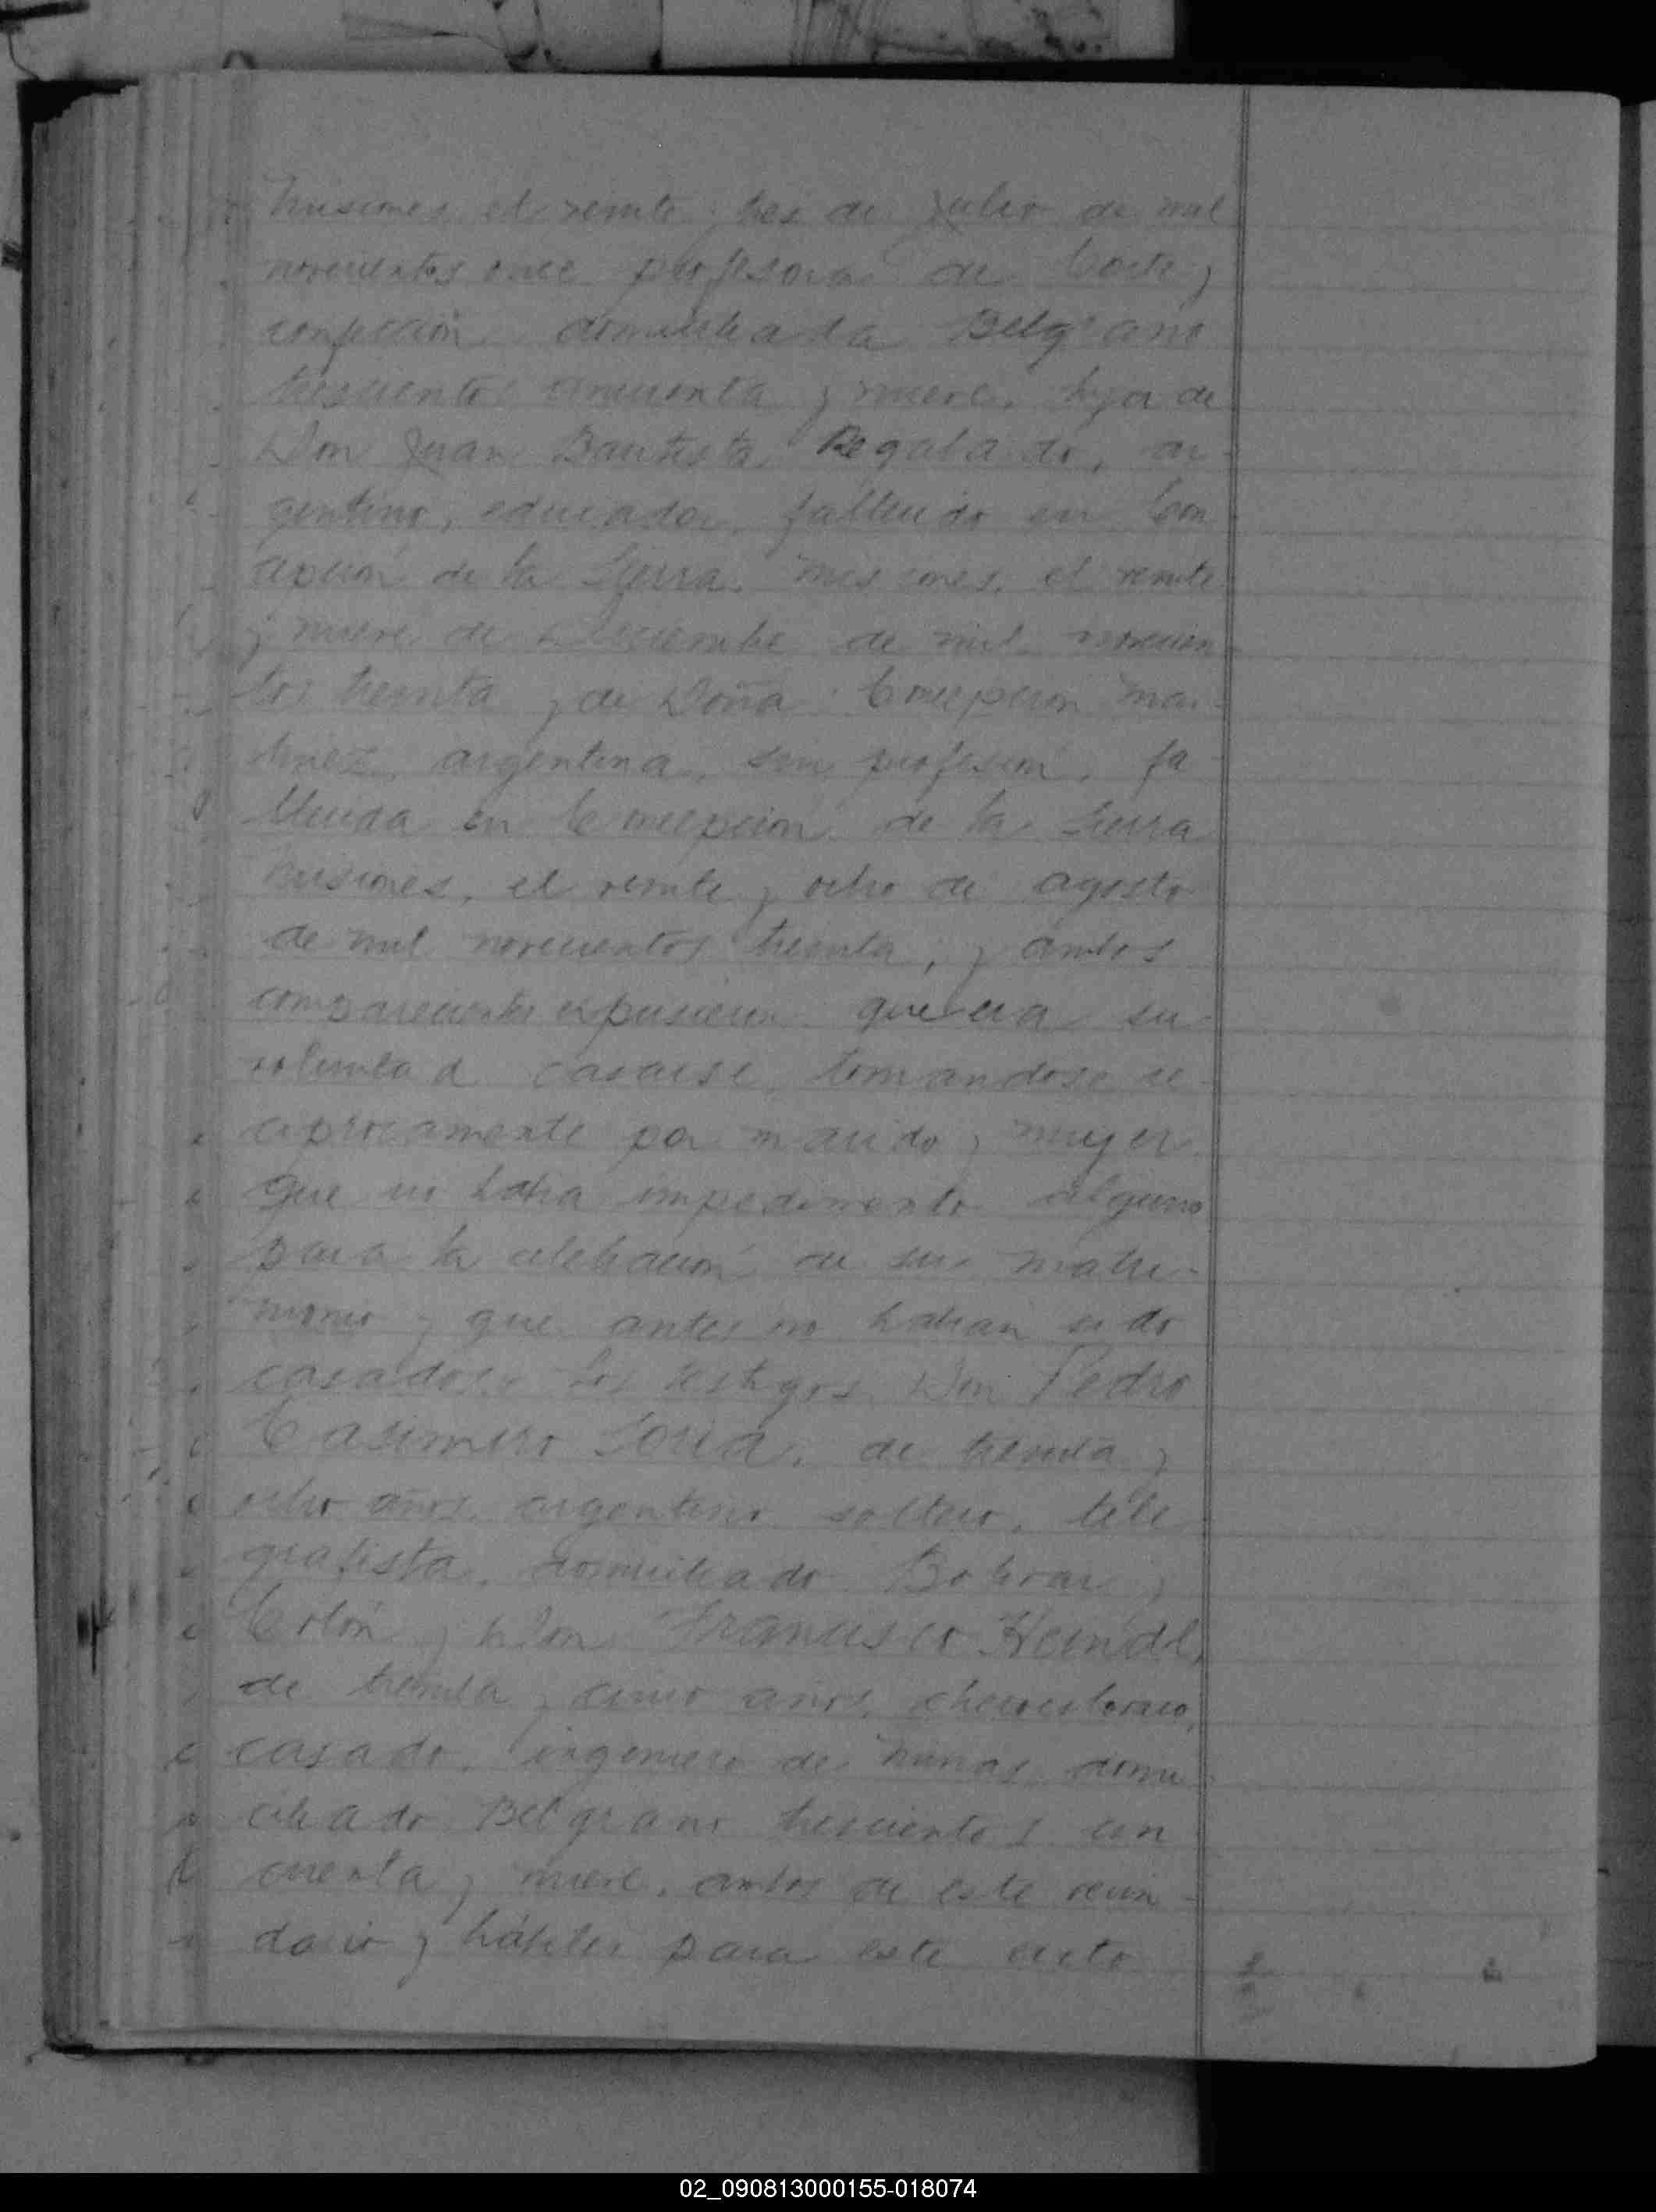 Misiones, el veinte y tres de Julio de mil
novecientos once profesora de Corte y
confección domiciliada Belgrano
trescientos cincuenta y nueve, hija de
Don Juan Bautista Regalado, ar-
gentino, educador, fallecido en Con
cepción de la Sierra, Misiones, el veinte
y nueve de Diciembre de mil novecien-
tos treinta y de Doña Concepcion Mar-
tinez, argentina, sin profesión, fa-
llecida en Concepción de la Sierra
Misiones, el veinte y ocho de agosto
de mil novecientos treinta, y ambos
comparecientes expusieron que era su
voluntad casarse, tomandose re-
ciprocamente por marido y mujer
que no habia impedimento alguno
para la celebración de su matri-
monio y que antes no habian sido
casados. Los testigos Don Pedro
Casimiro Soria, de treinta y
ocho años, argentino soltero, tele
grafista, domiciliado Bolivar y
Colón y Don Francisco Heindl,
de treinta y cinco años, checoeslovaco,
casado, ingeniero de minas domi-
ciliado Belgrano trescientos cin
cuenta y nueve, ambos de este vecin-
dario y hábiles para este acto
02_090813000155-018074